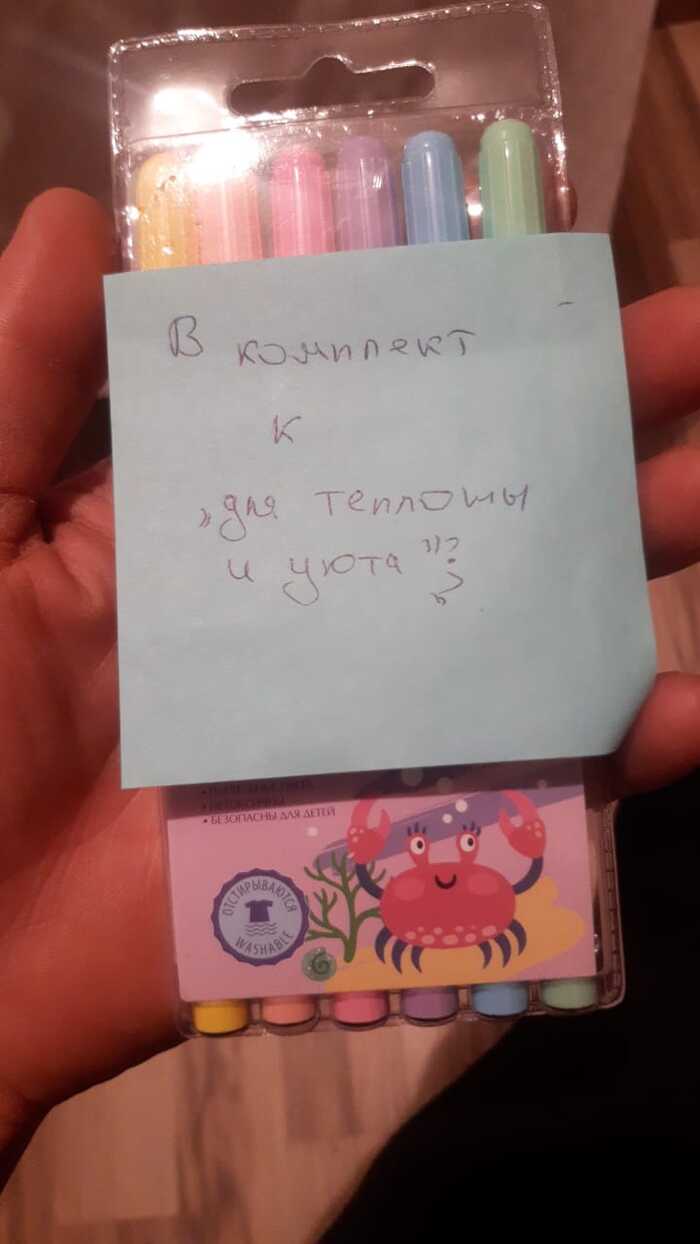 В комплект
к
„для теплоты
и уюта"?
• БЕЗОПАСНЫ ДЛЯ ДЕТЕЙ
ОТСТИРЫВАЮТСЯ
WASHABLE